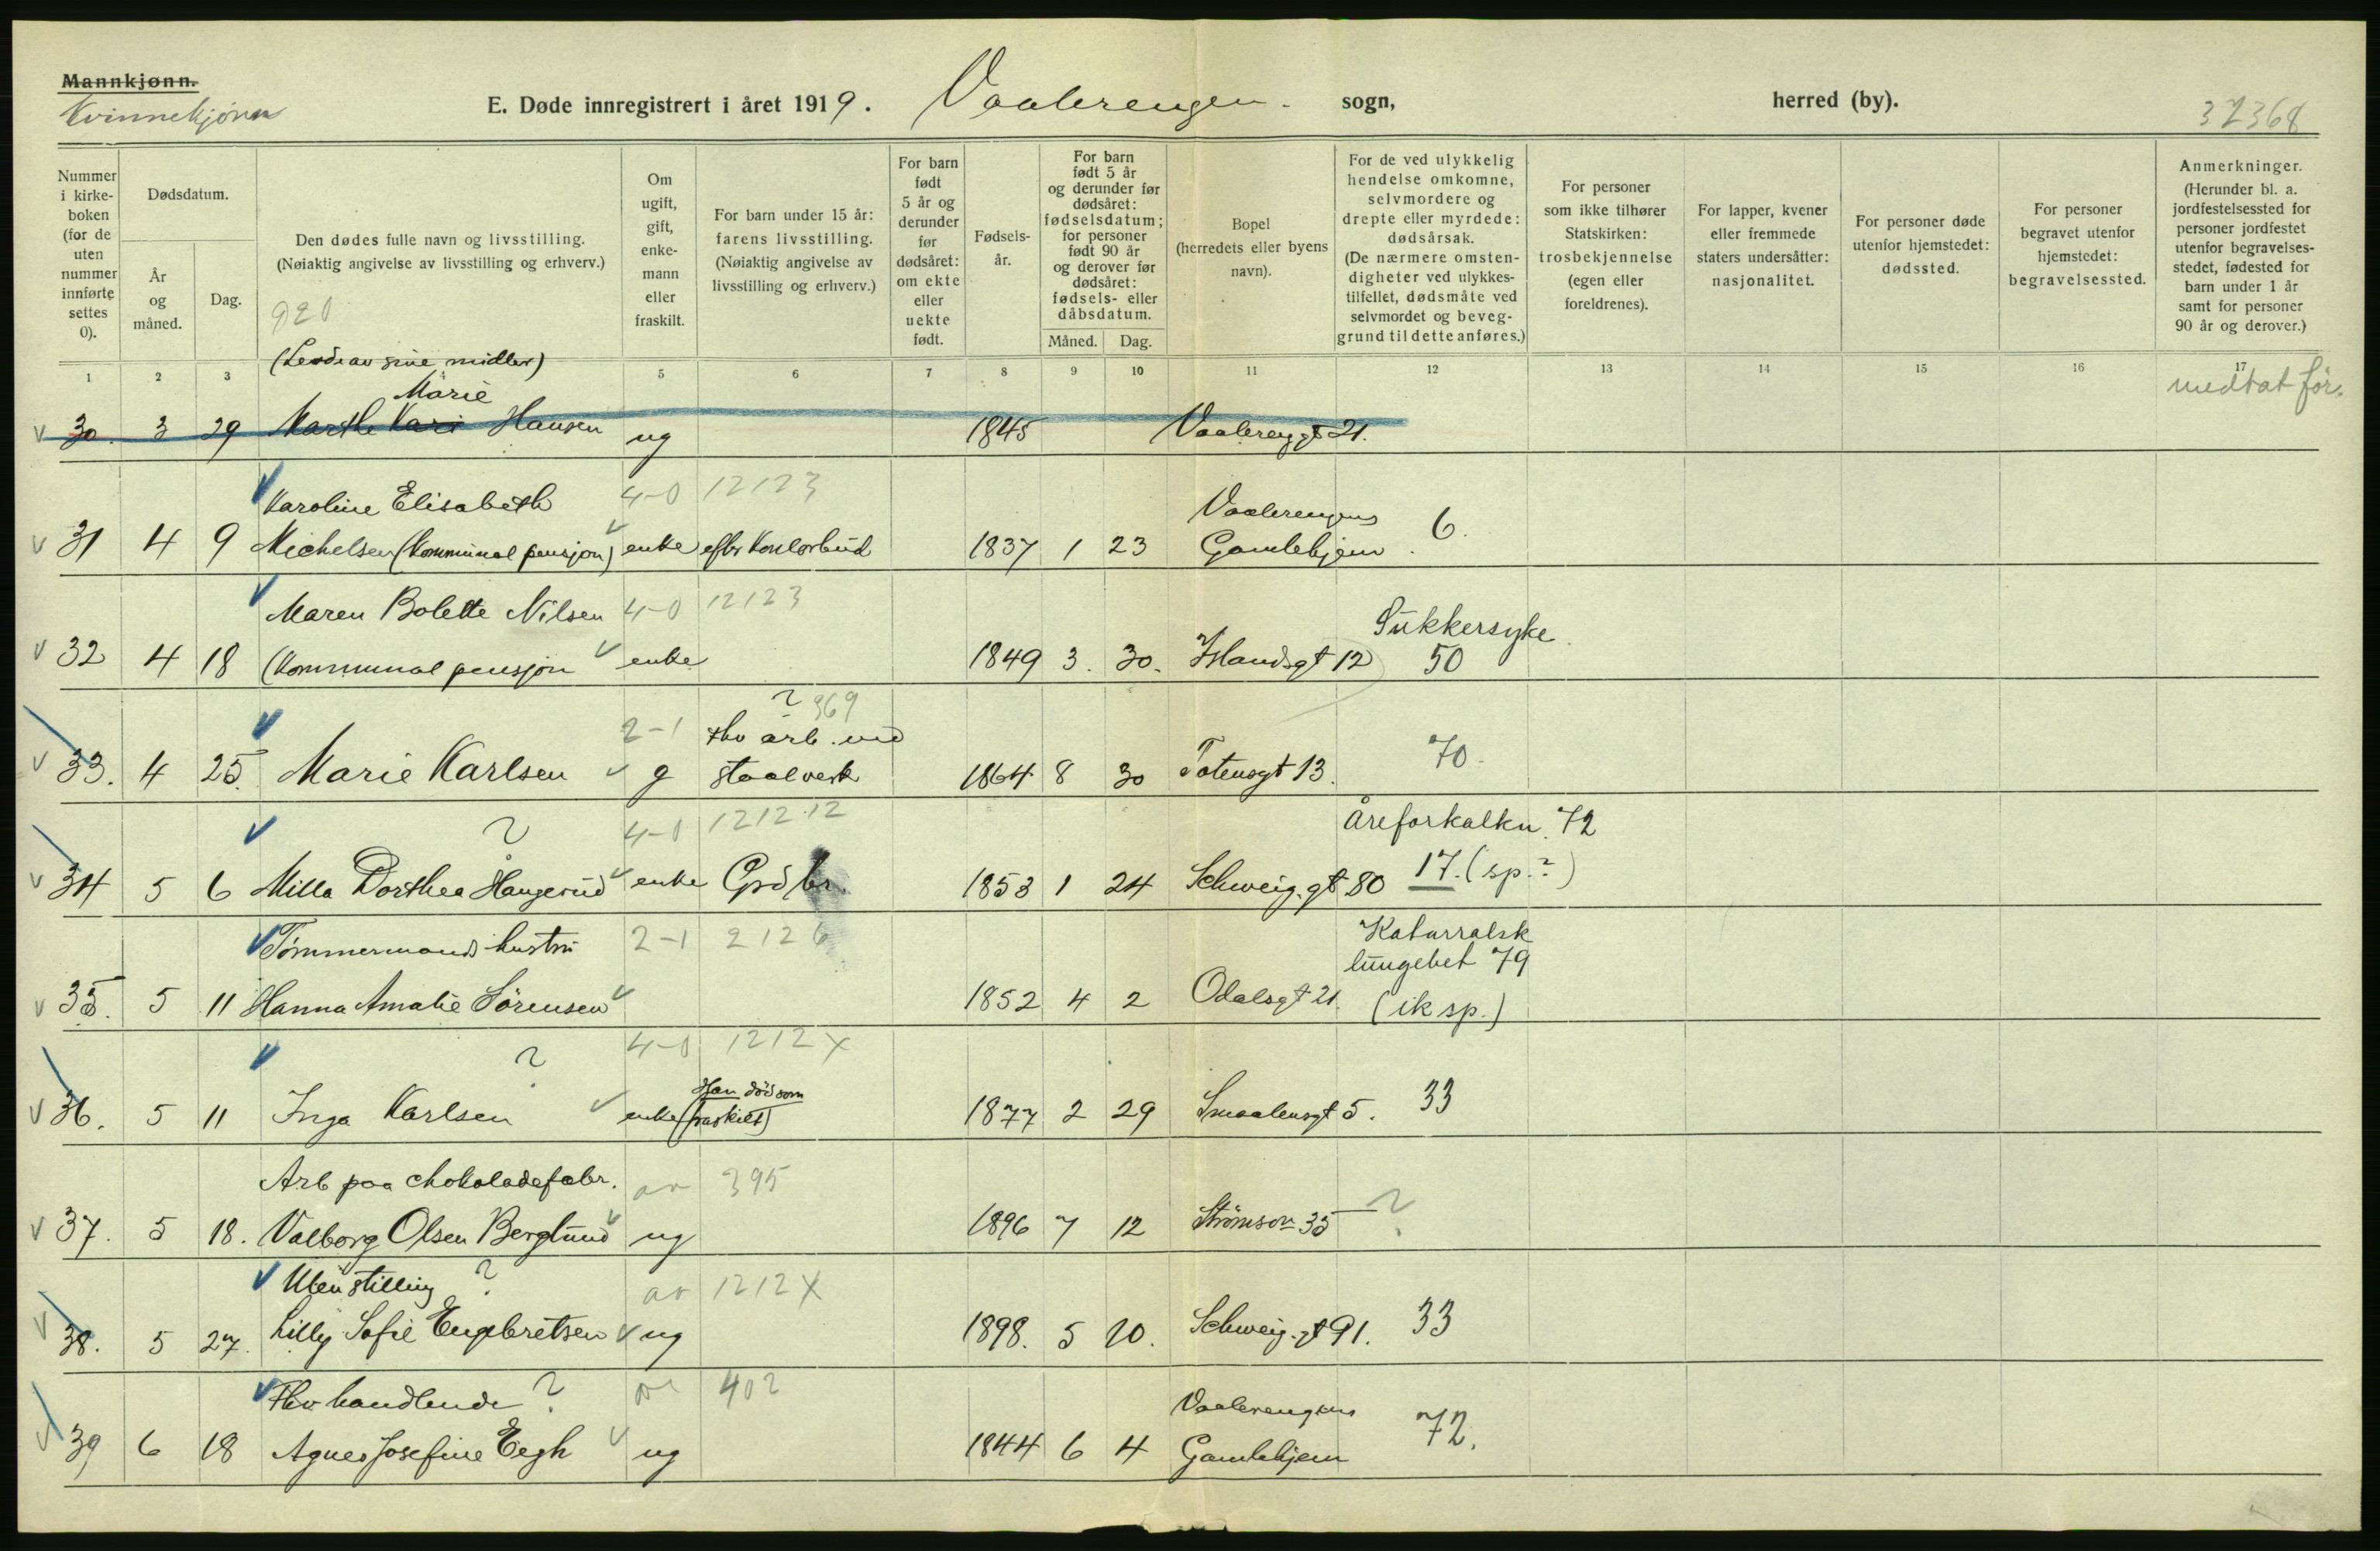 Mannkjønn.
Kvinnekjønn
E. Døde innregistrert i året 1919. Vaalerengen. sogn, herred (by).
32368
Nummer i kirke-boken (for de uten nummer innførte settes 0).
Dødsdatum.
År og måned.
Dag.
Den dødes fulle navn og livsstilling. (Nøiaktig angivelse av livsstilling og erhverv.)
920
Om ugift, gift, enke-mann eller fraskilt.
For barn under 15 år: farens livsstilling. (Nøiaktig angivelse av livsstilling og erhverv.)
For barn født 5 år og derunder før dødsåret: om ekte eller uekte født.
Fødsels-år.
For barn født 5 år og derunder før dødsåret: fødselsdatum; for personer født 90 år og derover før dødsåret: fødsels- eller dåbsdatum.
Måned. Dag.
Bopel (herredets eller byens navn).
For de ved ulykkelig hendelse omkomne, selvmordere og drepte eller myrdede: dødsårsak. (De nærmere omsten-digheter ved ulykkes-tilfellet, dødsmåte ved selvmordet og beveg-grund til dette anføres.)
For personer som ikke tilhører Statskirken: trosbekjennelse (egen eller foreldrenes).
For lapper, kvener eller fremmede staters undersåtter: nasjonalitet.
For personer døde utenfor hjemstedet: dødssted.
For personer begravet utenfor hjemstedet: begravelsessted.
Anmerkninger. (Herunder bl. a. jordfestelsessted for personer jordfestet utenfor begravelses-stedet, fødested for barn under 1 år samt for personer 90 år og derover.)
1 2 3 4 5 6 7 8 9 10 11 12 13 14 15 16 17
(Levde av sine midler)
Marie
medtat før.
30. 3 29 Marthe Kari Hansen ug 1845 Vaalereng.gt 21.
Karoline Elisabeth 4-0 12123 Vaalerengens 6.
31 4 9 Michelsen (Kommunal pensjon) enke efter Kontorbud 1837 1 23 Gamlehjem
Maren Bolette Nilsen 4-0 12123 Sukkersyke
32 4 18 (Kommunal pensjon enke 1849 3. 30. Islandsgt 12 50
? 969
2-1 fhv arb. ved 70.
33. 4 25. Marie Karlsen g staalverk 1864 8 30 Totensgt 13.
? 4-0 1212.12 Åreforkalkn. 72
34 5 6 Milla Dorthea Haugerud enke Grdbr. 1853 1 24 Schweig.gt 80 17. (sp.?)
Tømmermands hustru 2-1 2126 Katarralsk
lungebet 79
35. 5 11 Hanna Amalie Sørensen 1852 4 2 Odalsgt 21. (ik sp.)
? 4-0 1212 X
Han død som
36. 5 11 Inga Karlsen enke (fraskilt) 1877 2 29 Smaalensgt 5. 33
Arb paa chokoladefabr. av 395
37. 5 18. Valborg Olsen Berglund ug 1896 7 12 Strømsvn 35 ?
Uten stilling ? av 1212 X
38. 5 27. Lilly Sofie Engebretsen ug 1898. 5 20. Schweig.gt 91. 33
Fhv handlende ? 402 Vaalerengens 72.
39 6 18 Agnes Josefine Eegh ug 1844 6 4 Gamlehjem